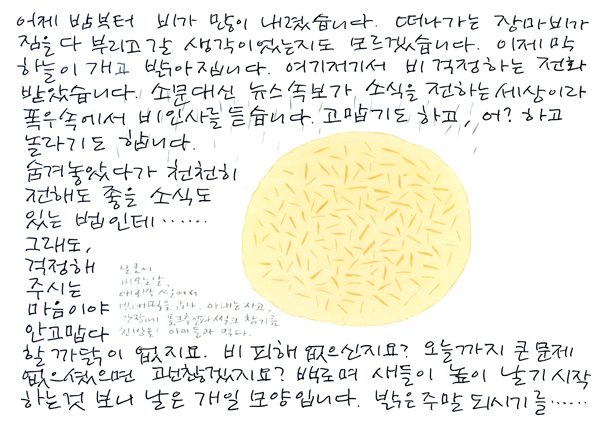 어제 밤부터 비가 많이 내렸습니다. 떠나가는 장마비가
짐을 다 부리고 갈 생각이었는지도 모르겠습니다. 이제 막
하늘이 개고 밝아집니다. 여기저기서 비 걱정하는 전화
받았습니다. 소문대신 뉴스속보가 소식을 전하는 세상이라
폭우속에서 비인사를 듣습니다. 고맙기도 하고, 어? 하고
놀라기도 합니다.
숨겨놓았다가 천천히
전해도 좋을 소식도
있는 법인데......
그래도,
걱정해
주시는
마음이야
안고맙다
할 까닭이 없지요. 비 피해 없으신지요? 오늘까지 큰 문제
없으셨으면 괜찮겠지요? 백로며 새들이 높이 날기 시작
하는것 보니 날은 개일 모양입니다. 밝은 주말 되시기를......
비오는날.
애호박 썰어서
아내는 사고,
참기름
아이들과 먹다.